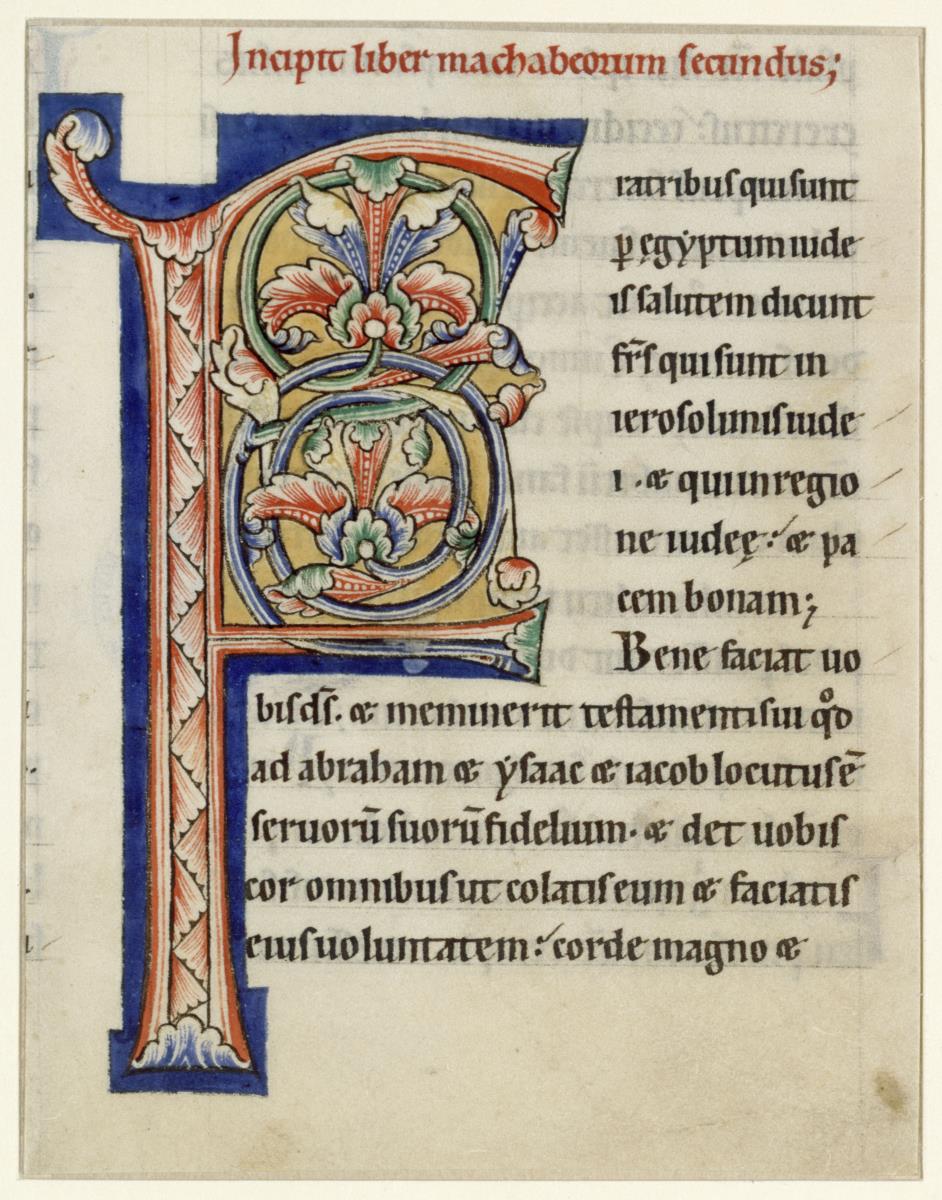 Incipit liber machabeorum secundus;
F
ratribus qui sunt
ꝑ ęgẏptum iude
is salutem dicunt
fr̄s qui sunt in
ierosolimis iude
i . & qui in regio
ne iudeę : & pa
cem bonam;
Bene faciat uo
bis d̄s . & meminerit testamenti sui qͦd
ad abraham & ẏsaac & iacob locutus ē
seruorū suorū fidelium . & det uobis
cor omnibus ut colatis eum & faciatis
eius uoluntatem : corde magno &